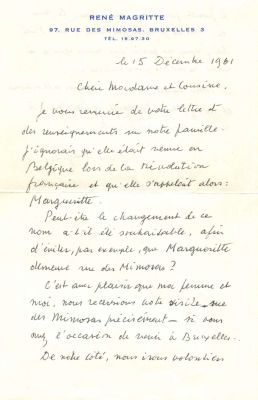 RENÉ MAGRITTE
97, RUE DES MIMOSAS, BRUXELLES 3
TÉL. 15.97.30
le 15 Décembre 1961
Chère Madame et Cousine,
Je vous remercie de votre lettre et
des renseignements sur notre famille.
J'ignorais qu'elle était venue en
Belgique lors de la révolution
française et qu'elle s'appelait alors :
Margueritte.
Peut-être le changement de ce
nom a-t-il été souhaitable, afin
d'éviter, par exemple, que Margueritte
demeure rue des Mimosas ?
C'est avec plaisir que ma femme et
moi, nous recevrions votre visite - rue
des Mimosas précisément - si vous
avez l'occasion de venir à Bruxelles -.
De notre côté, nous irons volontiers